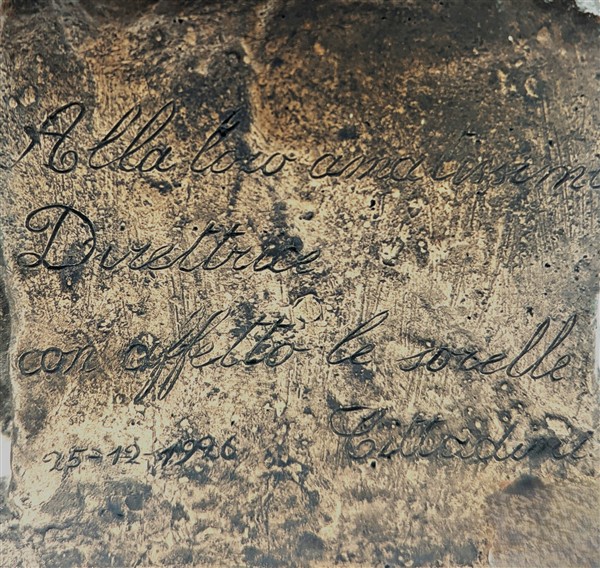 Alla loro amatissima
Direttrice
con affetto le sorelle
Cittadini
25-12-1926